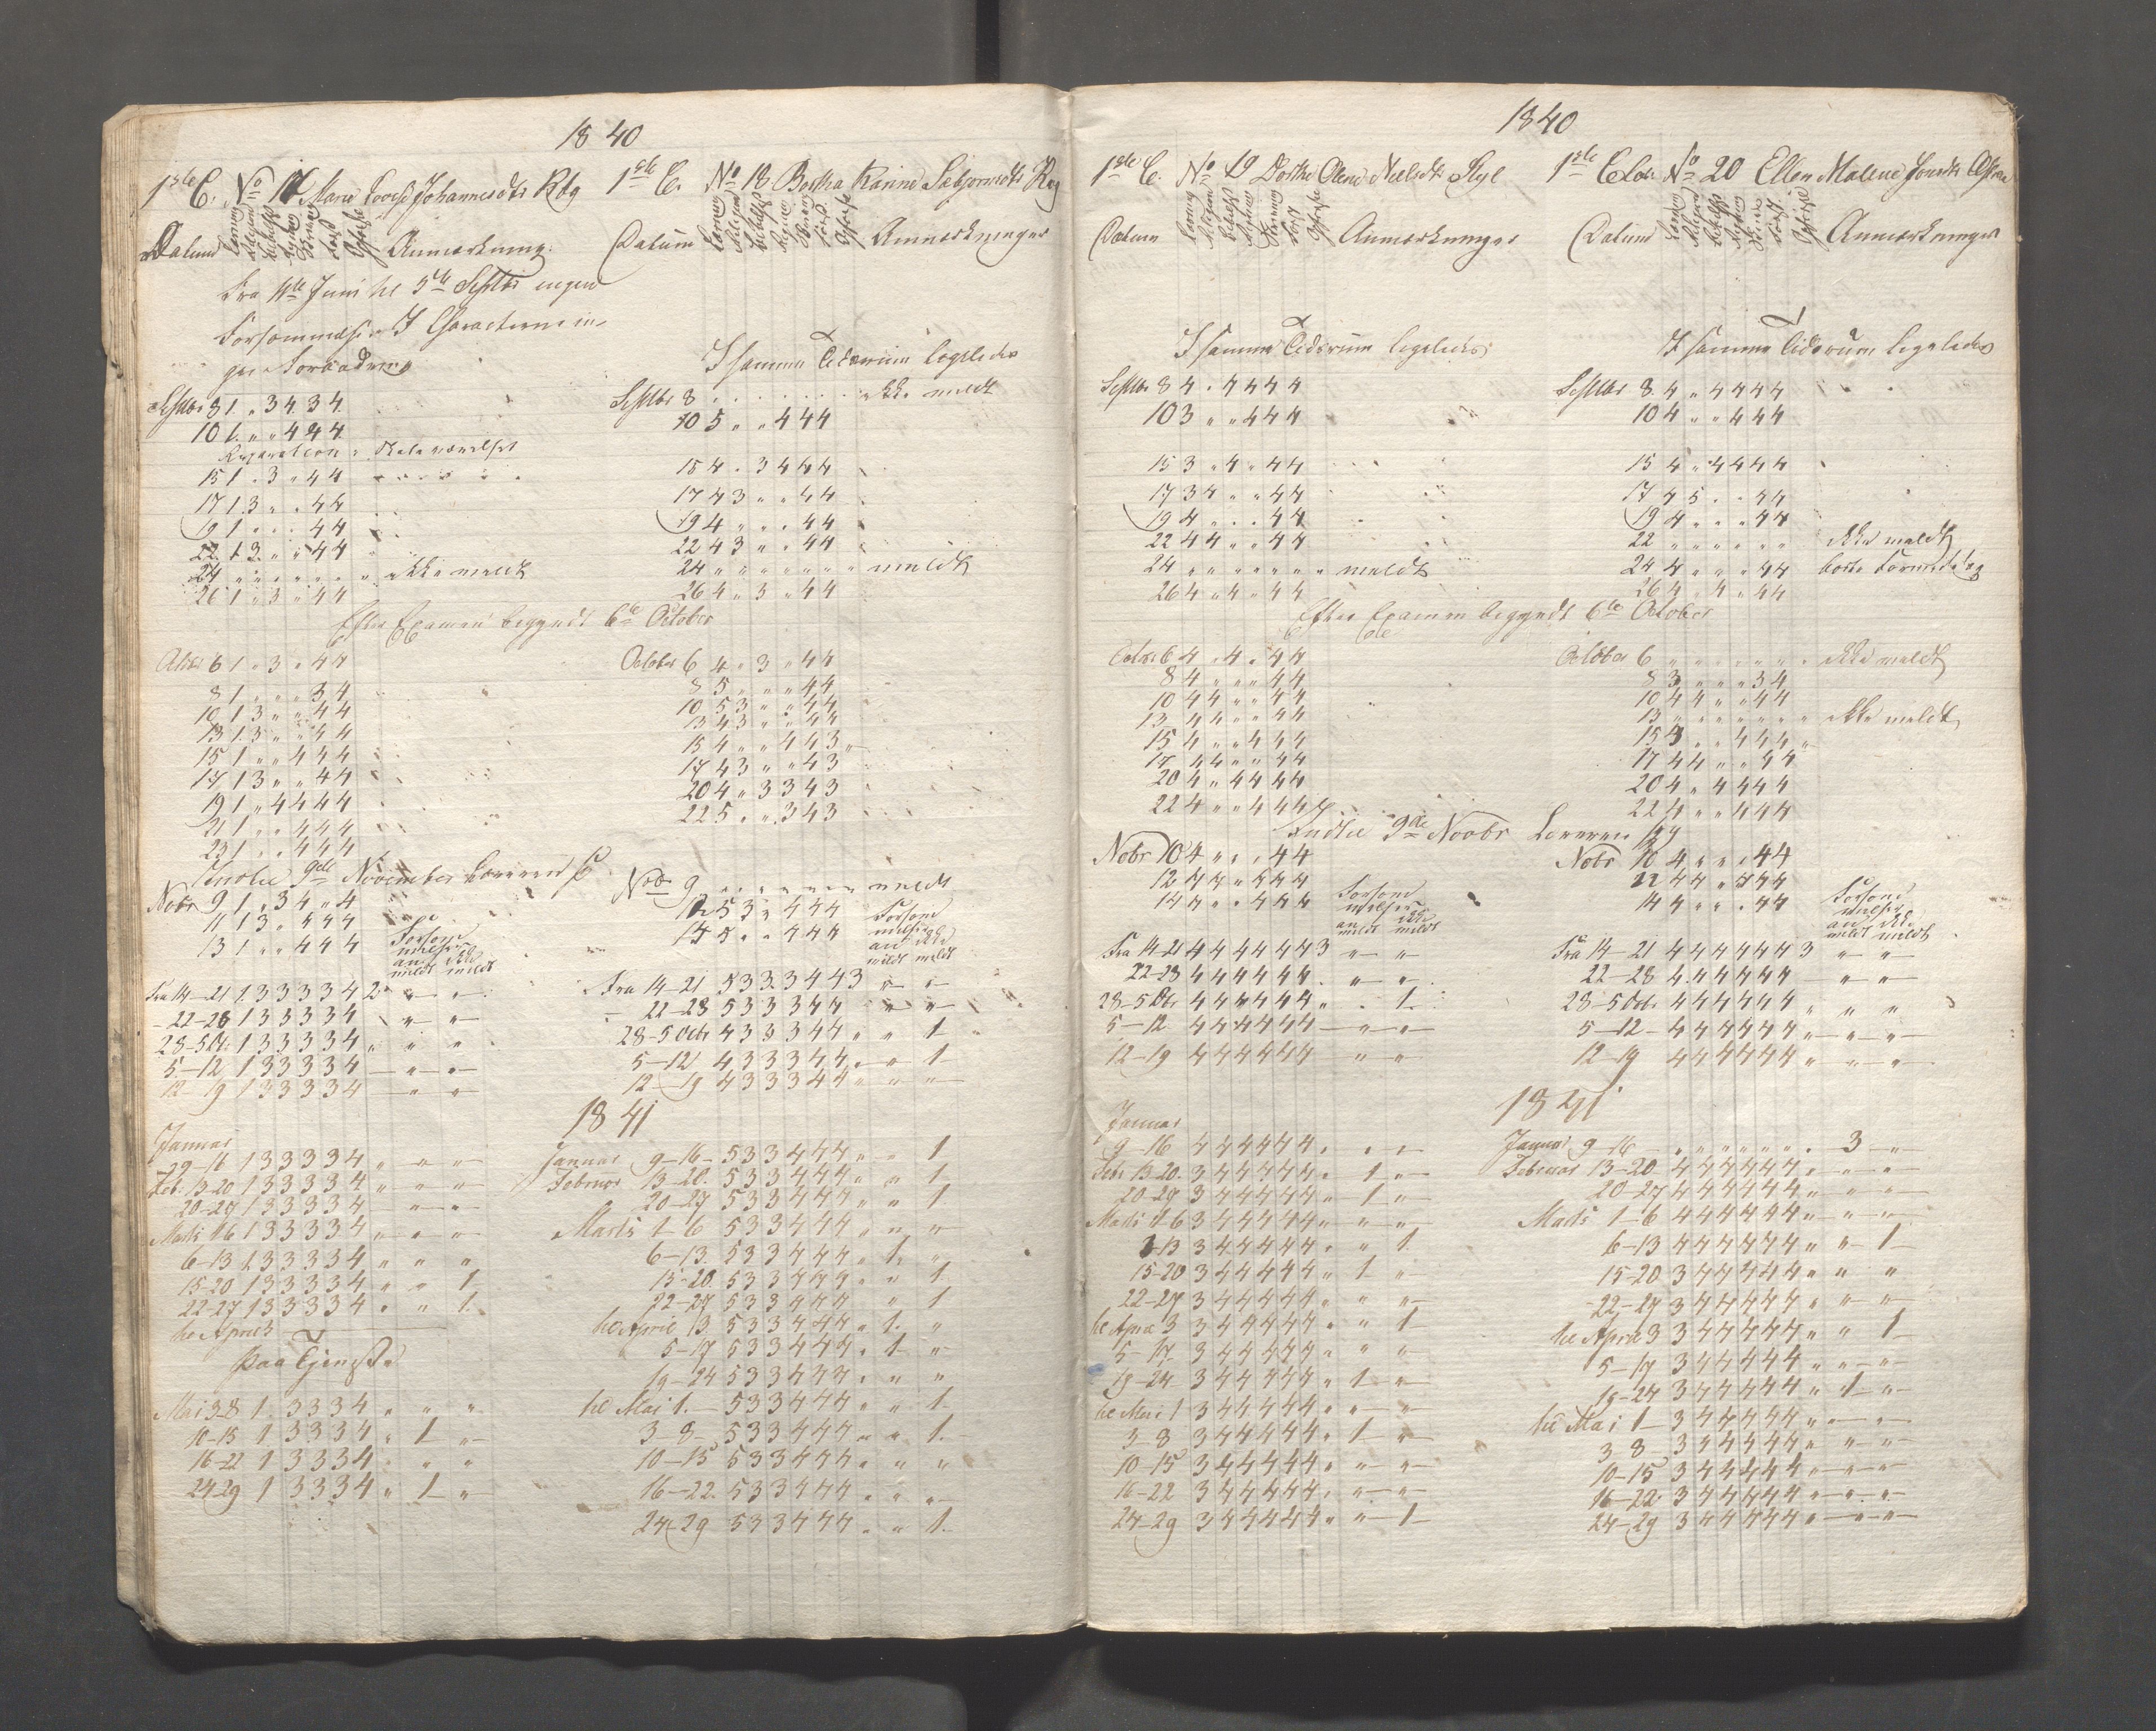 1840
1ste C. No 17 Marie Johannesdtr
Datum Anmærkning
Fra 11te Juni til 5te Septbr ingen
Forsømmelse. I Characterne in-
gen Forandring
Septbr 8 1 " 3 4 3 4
10 1 " " 4 4 4
Reparation
15 1 " 3 " 4 4
17 1 3 " " 4 4
19 1 " " " 4 4
22 1 3 " " 4 4
24 " " " " " " " ikke meldt
26 1 " 3 " 4 4
Efter Examen begyndt 6te October
Octbr 6 1 " 3 " 4 4
8 1 " " " 3 4
10 1 3 " " 4 4
13 1 3 " " 4 4
15 1 " " 4 4 4
17 1 3 " " 4 4
19 1 " 4 4 4 4
21 1 " " 4 4 4
23 1 " " 4 4 4
9de November Læreren
Nobr 9 1 " 3 4 " 4
11 1 3 " 4 4 4
13 1 " " 4 4 4 Forsøm-
melser
an- ikke
meldt meldt
Fra 14-21 1 3 3 3 3 4 2 " "
22-28 1 3 3 3 3 4 " "
28-5 1 3 3 3 3 4 " " "
5-12 1 3 3 3 3 4 " "
12-19 1 3 3 3 3 4 " "
Januar
9-16 1 3 3 3 3 4 " " "
Feb. 13-20 1 3 3 3 3 4 " " "
20-27 1 3 3 3 3 4 " "
Marts 1-6 1 3 3 3 3 4 " " "
6-13 1 3 3 3 3 4 " " "
15-20 1 3 3 3 3 4 " " 1
22-27 1 3 3 3 3 4 " " 1
til April 3
paa Tjeneste
Mai 3-8 1 3 3 3 4 " " "
10-15 1 3 3 3 4 " 1 "
16-22 1 3 3 3 4 " " "
24-29 1 3 3 3 4 " 1 "
1ste C. No 18 Bertha Karine
Datum Anmærkninger
I samme Tidsrum ligeledes
Septbr 8 ikke meldt
10 5 " " 4 4 4
15 4 " 3 4 4 4
17 4 3 " " 4 4
19 4 " " " 4 4
22 4 3 " " 4 4
24 " " " " " " " meldt
26 4 " 3 " 4 4
October 6 4 " 3 " 4 4
8 5 " " " 4 4
10 5 3 " " 4 4
13 4 3 " " 4 4
15 4 " " 4 4 3
17 4 3 " " 4 3
20 4 " 3 3 4 3
22 5 " " 3 4 3
Nobr 9 " " " " " " meldt
12 5 3 " 4 4 4 Forsøm-
melser
14 5 " " 4 4 4 an- ikke
meldt meldt
Fra 14-21 5 3 3 3 4 4 3 " "
22-28 5 3 3 3 4 4 " "
28-5 Dcbr 4 3 3 3 4 4 " " 1
5-12 4 3 3 3 4 4 " " 1
12-19 4 3 3 3 4 4 " " "
1841
Januar 9-16 5 3 3 4 4 4 " " 1
Februar 13-20 5 3 3 4 4 4 " " 1
20-27 5 3 3 4 4 4 " " 1
Marts 1-6 5 3 3 4 4 4 " " "
6-13 5 3 3 4 4 4 " 1 "
15-20 5 3 3 4 4 4 " " 1
22-27 5 3 3 4 4 4 " 1
til April 3 5 3 3 4 4 4 " 1 "
5-17 5 3 3 4 4 4 " 1 "
19-24 5 3 3 4 4 4 " " "
til Mai 1 5 3 3 4 4 4 " " 1
3-8 5 3 3 4 4 4 " " 1
10-15 5 3 3 4 4 4 " " "
16-22 5 3 3 4 4 4 " " "
24-29 5 3 3 4 4 4 " " 1
1840
1ste C. No 19 Dorthe Olene
Datum Anmærkninger
I samme Tidsrum ligeledes
Septbr 8 4 " 4 4 4 4
10 3 " " 4 4 4
15 3 " 4 " 4 4
17 3 4 " " 4 4
19 4 " " " 4 4
22 4 4 " " 4 4
24 " " " " " " " meldt
26 4 " 4 " 4 4
Efter Examen begyndt 6te October
Octbr 6 4 " 4 " 4 4
8 4 " " " 4 4
10 4 4 " " 4 4
13 4 4 " " 4 4
15 4 " " 4 4 4
17 4 4 " " 4 4
20 4 " 4 4 4 4
22 4 " " 4 4 4
9de Novbr Læreren syg
Nobr 10 4 " " " 4 4
12 4 4 " 4 4 4
14 4 " " 4 4 4 Forsøm-
melser
an- ikke
meldt meldt
Fra 14-21 4 4 4 4 4 4 3 " "
22-28 4 4 4 4 4 4 " " "
28-5 Dbr 4 4 4 4 4 4 " " 1
5-12 4 4 4 4 4 4 " "
12-19 4 4 4 4 4 4 " "
Januar
9-16 4 4 4 4 4 4 " " "
Febr 13-20 3 4 4 4 4 4 " 1 "
20-27 3 4 4 4 4 4 " 1 "
Marts 1-6 3 4 4 4 4 4 " " "
6-13 3 4 4 4 4 4 " " 1
15-20 3 4 4 4 4 4 " 1 "
22-27 3 4 4 4 4 4 " " "
til April 3 3 4 4 4 4 4 " " 1
5-17 3 4 4 4 4 4 " " "
19-24 3 4 4 4 4 4 " 1 "
til Mai 1 3 4 4 4 4 4 " " "
3-8 3 4 4 4 4 4 " 1 "
10-15 3 4 4 4 4 4 " " "
16-22 3 4 4 4 4 4 " " "
24-29 3 4 4 4 4 4 " " 1
1ste No 20 Ellen Malene
Datum Anmærkninger
I samme Tidsrum ligeledes
Septbr 8 4 " 4 4 4 4
10 4 " " 4 4 4
15 4 " 4 4 4 4
17 4 5 " " 4 4
19 4 " " " 4 4
22 " " " " " " ikke meldt
24 4 " " " 4 4 borte Formiddag
26 4 " 4 " 4 4
October 6 " " " " " " " ikke meldt
8 3 " " " 3 4
10 4 4 " " 4 4
13 " " " " " " " ikke meldt
15 3 " " 4 4 4
17 4 4 " " 4 4
20 4 " 4 4 4 4
22 4 " " 4 4 4
Nobr 10 4 " " " 4 4
12 4 4 " 4 4 4
14 4 " " " 4 4 Forsøm-
melser
an- ikke
meldt meldt
Fra 14-21 4 4 4 4 4 4 3 " "
22-28 4 4 4 4 4 4 " "
28-5 Dcbr 4 4 4 4 4 4 " " "
5-12 4 4 4 4 4 4 " " "
12-19 4 4 4 4 4 4 " " "
1841
Januar 9-16 " " " " " " " 3 "
Februar 13-20 4 4 4 4 4 4 " " "
20-27 4 4 4 4 4 4 " " "
Marts 1-6 4 4 4 4 4 4 " " "
6-13 4 4 4 4 4 4 " " 1
15-20 3 4 4 4 4 4 " " "
22-27 3 4 4 4 4 4 " " "
til April 3 3 4 4 4 4 4 " " 1
5-17 3 4 4 4 4 4 " " "
19-24 3 4 4 4 4 4 " 1 "
til Mai 1 3 4 4 4 4 4 " " "
3-8 3 4 4 4 4 4 " " "
10-15 3 4 4 4 4 4 " " "
16-22 3 4 4 4 4 4 " " "
24-29 3 4 4 4 4 4 " " "